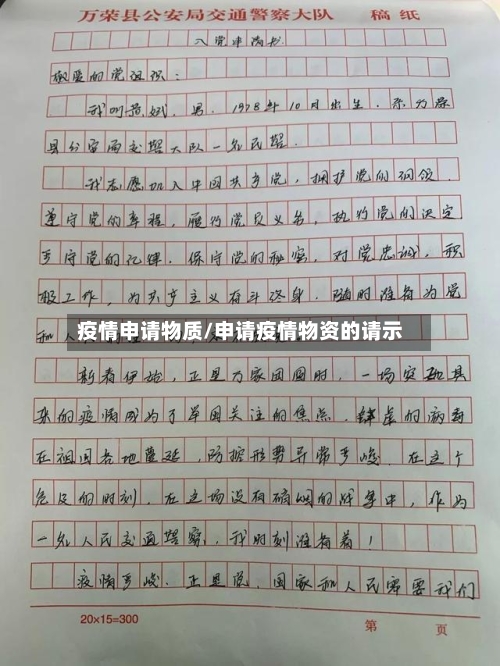 万荣县公安局交通警察大队 稿纸
入党申请书
敬爱的党组织：
我叫 ，男，1978年10月出生，系万荣
县公安局交警大队一名民警。
我志愿加入中国共产党，拥护党的纲领，
遵守党的章程，履行党员义务，执行党的决定
严守党的纪律，保守党的秘密，对党忠诚，积
极工作，为共产主义奋斗终身，随时准备为党
和人
疫情申请物质/申请疫情物资的请示
新春伊始，正是万家团圆时，一场突如其
来的疫情成为了举国关注的焦点，肆虐的病毒
在祖国各地蔓延，防控形势异常严峻，在这个
危急的时刻，在这场没有硝烟的战争中，作为
一名人民交通警察，我时刻准备着！
疫情严峻，正是党、国家和人民需要我们
20×15=300 第 页